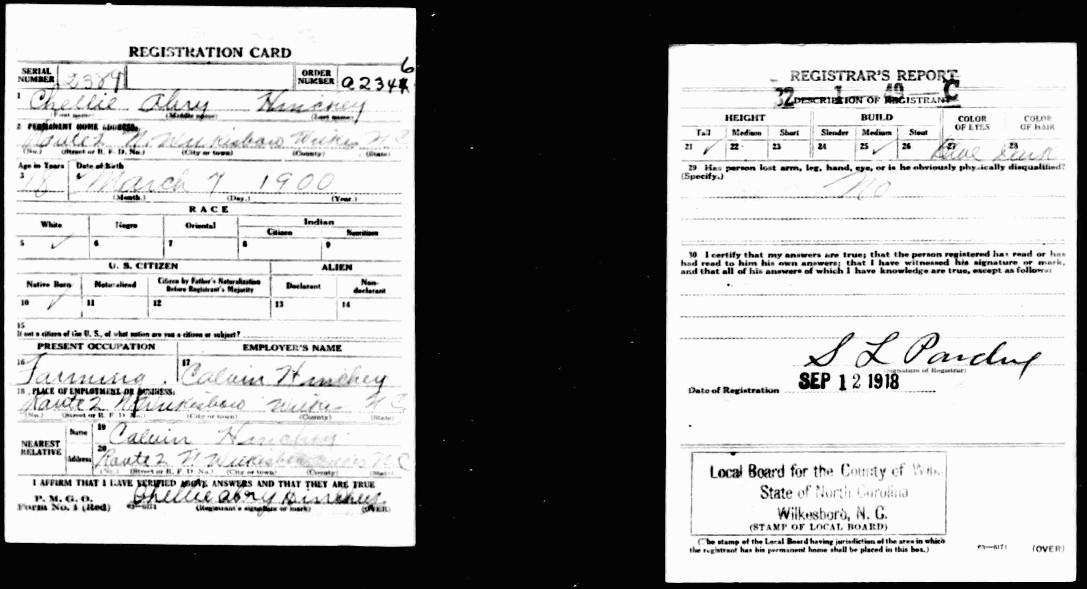 REGISTRATION CARD
SERIAL NUMBER 2389 ORDER NUMBER
1 Chellie Abry Hinchey
(First name) (Middle name) (Last name)
2 PERMANENT HOME ADDRESS:
Route 2 N. Wilkesboro Wilkes N.C.
(No.) (Street or R. F. D. No.) (City or town) (County) (State)
Age in Years Date of Birth
3 18 4 March 7 1900
(Month.) (Day.) (Year.)
RACE
White Negro Oriental Indian
Citizen Noncitizen
5 ✓ 6 7 8 9
U. S. CITIZEN ALIEN
Native Born Naturalized Citizen by Father's Naturalization Before Registrant's Majority Declarant Non-declarant
10 ✓ 11 12 13 14
15
If not a citizen of the U. S., of what nation are you a citizen or subject?
PRESENT OCCUPATION EMPLOYER'S NAME
16 Farming 17 Calvin Hinchey
18 PLACE OF EMPLOYMENT OR BUSINESS:
Route 2 N Wilkesboro Wilkes N C
(No.) (Street or R. F. D. No.) (City or town) (County) (State)
NEAREST RELATIVE Name 19 Calvin Hinchey
Address 20 Route 2 N. Wilkesboro Wilkes N C
(No.) (Street or R. F. D. No.) (City or town) (County) (State)
I AFFIRM THAT I HAVE VERIFIED ABOVE ANSWERS AND THAT THEY ARE TRUE
P. M. G. O. Form No. 1 (Red) 03—6171 Chellie Abry Hinchey
(Registrant's signature or mark) (OVER)
REGISTRAR'S REPORT
32 1 49 C
DESCRIPTION OF REGISTRANT
HEIGHT BUILD COLOR OF EYES COLOR OF HAIR
Tall Medium Short Slender Medium Stout
21 ✓ 22 23 24 25 ✓ 26 27 Blue 28 Dark
29 Has person lost arm, leg, hand, eye, or is he obviously physically disqualified?
(Specify.) No
30 I certify that my answers are true; that the person registered has read or has
had read to him his own answers; that I have witnessed his signature or mark,
and that all of his answers of which I have knowledge are true, except as follows:
S L Pardue
(Signature of Registrar)
Date of Registration SEP 12 1918
Local Board for the County of Wilk
State of North Carolina
Wilkesboro, N. C.
(STAMP OF LOCAL BOARD)
(The stamp of the Local Board having jurisdiction of the area in which
the registrant has his permanent home shall be placed in this box.)
03—6171 (OVER)